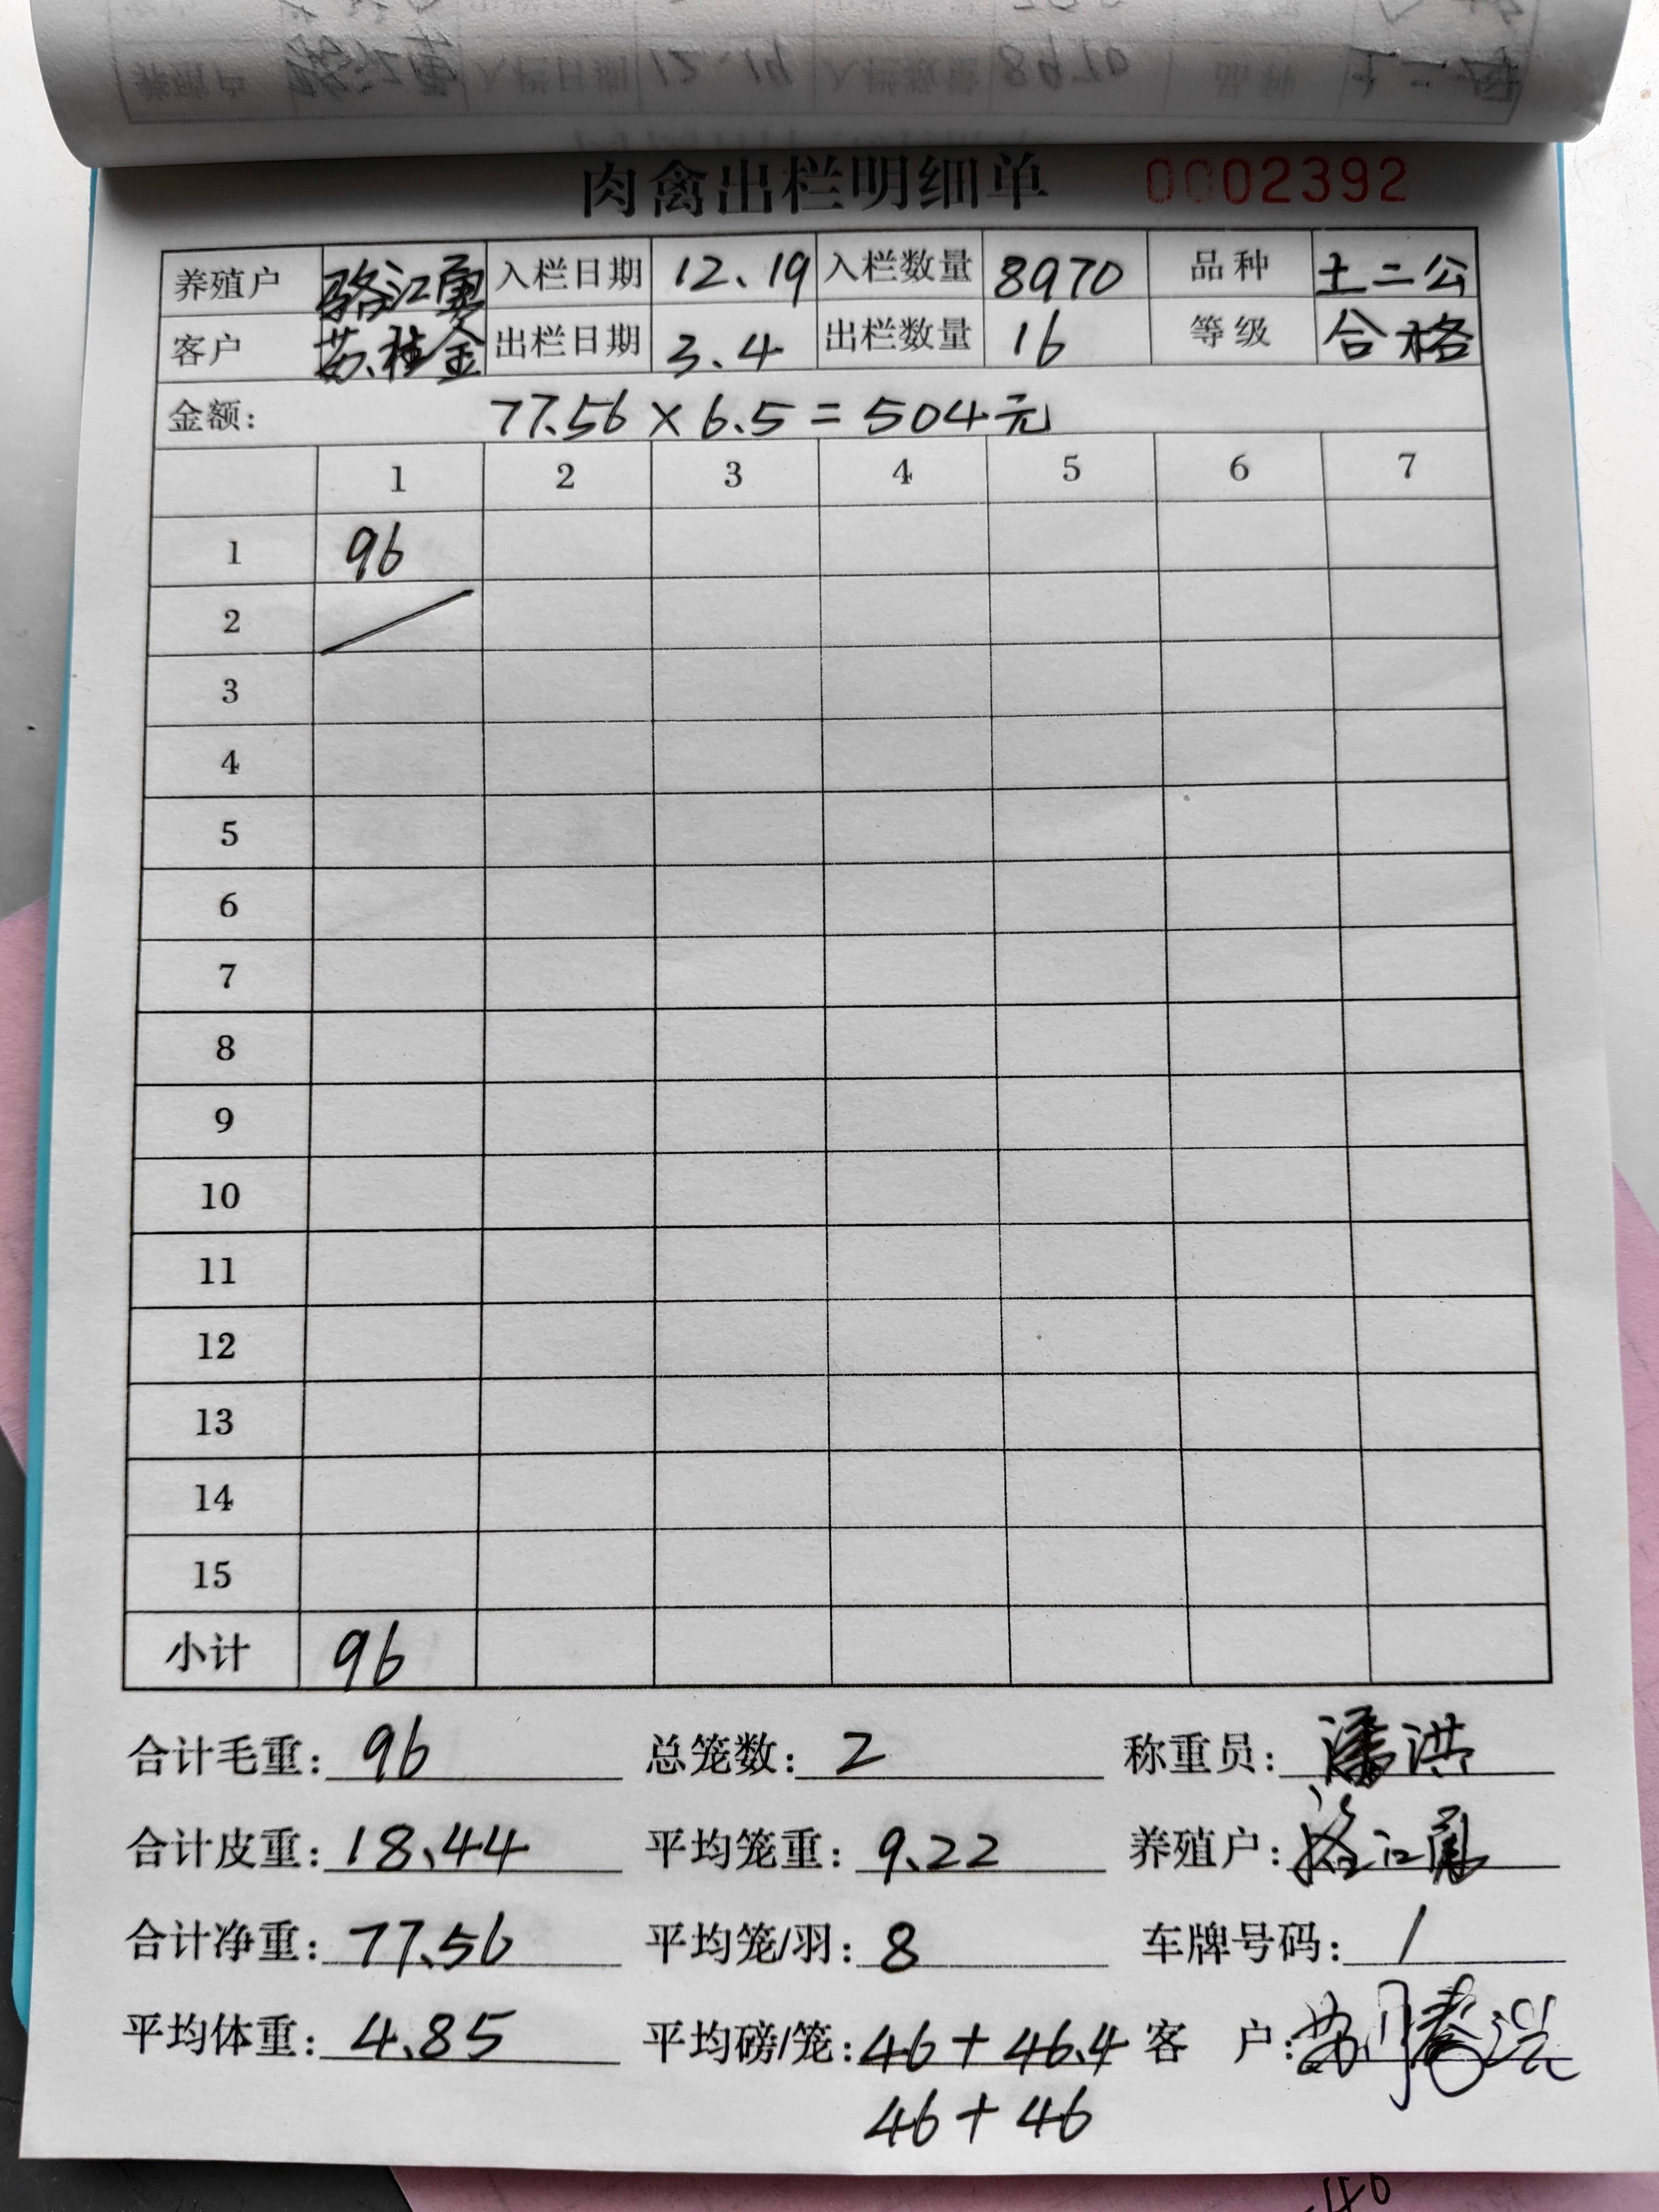 肉禽出栏明细单 0002392
养殖户 骆江勇 入栏日期 12.19 入栏数量 8970 品种 土二公
客户 苏桂金 出栏日期 3.4 出栏数量 16 等级 合格
金额: 77.56×6.5=504元
1 2 3 4 5 6 7
1 96
2
3
4
5
6
7
8
9
10
11
12
13
14
15
小计 96
合计毛重: 96 总笼数: 2 称重员: 潘洪
合计皮重: 18.44 平均笼重: 9.22 养殖户: 骆江勇
合计净重: 77.56 平均笼/羽: 8 车牌号码: /
平均体重: 4.85 平均磅/笼: 46+46.4 客户:
46+46